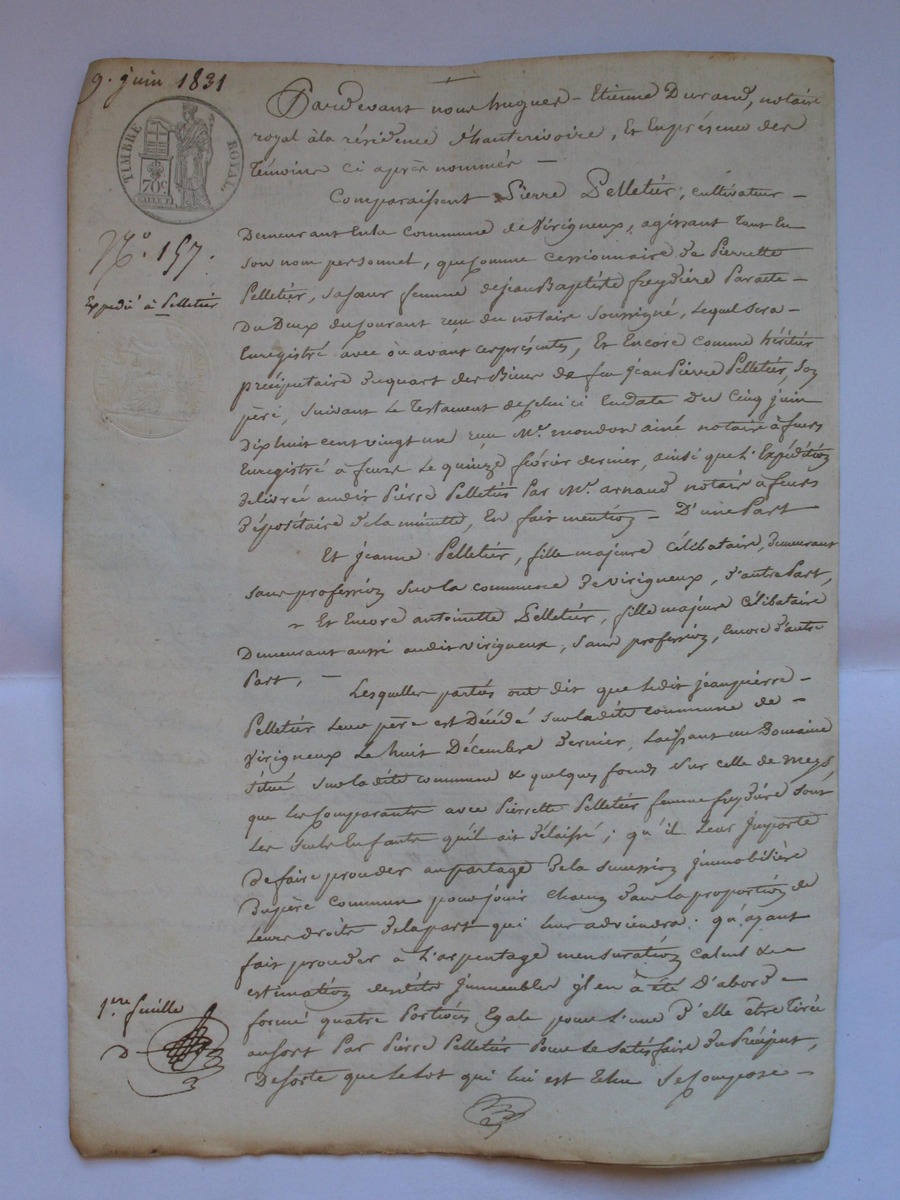 9. juin 1831
TIMBRE ROYAL
70c
N.º 157.
Expedié à Pelletier
Pardevant nous hugues - Etienne Durand, notaire
royal à la résidence d'hauterivoire, Et Enprésence des
Témoins ci après nommés —
Comparaissent Pierre Pelletier, cultivateur -
Demeurant Enla Commune de Virigneux, agissant tant En
Son nom personnel, que comme cessionnaire de Pierrette
Pelletier, sa sœur femme de jean Baptiste freydière Par acte -
Du Deux du courant reçu du notaire soussigné, lequel sera -
Enregistré avec ou avant ces présentes, Et Encore comme héritier
préciputaire du quart des Biens de feu jean Pierre Pelletier, son
père, suivant le testament de celui ci En date du Cinq juin
Dix huit cent vingt un reçu Me. mondon ainé notaire à feurs
Enregistré à feurs le quinze février dernier, ainsi que l'Expédition
délivrée audit Pierre Pelletier Par Me. arnaud notaire à feurs
dépositaire de la minutte, En fait mention — D'une Part
Et jeanne Pelletier, fille majeure célibataire, demeurant
sans profession sur la commune de virigneux, d'autre Part,
Et Encore antoinette Pelletier, fille majeure célibataire
Demeurant aussi audit virigneux, sans profession, Encore d'autre
Part, —
Lesquelles parties ont dit que ledit jean pierre -
Pelletier leur père est Décédé sur ladite commune de -
Virigneux le huit Décembre dernier, laissant un Domaine
situé sur ladite commune & quelques fonds sur celle de meys
que les comparants avec Pierrette Pelletier femme freydière sont
les seuls Enfants qu'il ait délaissé ; qu'il leur importe
de faire procéder au partage de la succession jmmobilière
du père commun pour jouir chacun dans la proportion de
leurs droits de la part qui leur adviendra : qu'ayant
fait procéder à l'arpentage mensuration calcul &
estimation desdits jmmeubles jl en à été D'abord -
formé quatre Portions Egale pour l'une d'elle être tirée
au sort Par Pierre Pelletier Pour le satisfaire du Préciput,
De sorte que le lot qui lui est échu se compose -
1ere feuille
D